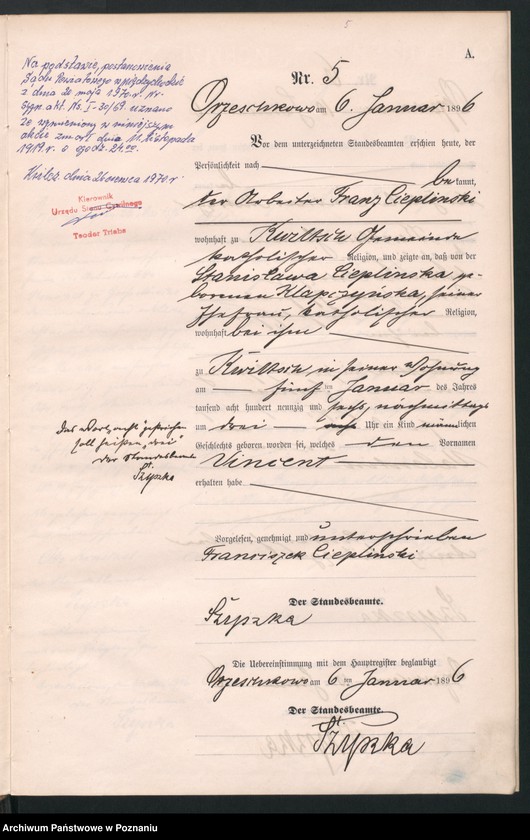 5
A.
Nr. 5
Orzeschkowo am 6. Januar 1896
Vor dem unterzeichneten Standesbeamten erschien heute, der
Persönlichkeit nach
bekannt,
der Arbeiter Franz Cieplinski
wohnhaft zu Kwiltsch Gemeinde
katholischer Religion, und zeigte an, daß von der
Stanislawa Cieplinska ge-
borenen Klapczyńska, seiner
Ehefrau, katholischer Religion,
wohnhaft bei ihm
zu Kwiltsch in seiner Wohnung
am fünf ten Januar des Jahres
tausend acht hundert neunzig und sechs, nachmittags
um drei acht Uhr ein Kind männlichen
Geschlechts geboren worden sei, welches den Vornamen
Vincent
erhalten habe
Vorgelesen, genehmigt und unterschrieben
Franciszek Cieplinski
Der Standesbeamte.
Szypzka
Die Uebereinstimmung mit dem Hauptregister beglaubigt
Orzeschkowo am 6 ten Januar 1896
Der Standesbeamte.
St. Szypzka
Na podstawie, postanowienia
Sądu Powiatowego w Międzychodzie
z dnia 20 maja 1970 r. Nr.
sygn. akt. Ns. I-30/69 uznano
że wymieniony w niniejszym
akcie zmarł dnia 11 listopada
1919 r. o godz. 24.00
Kwilcz, dnia 26 czerwca 1970 r
Kierownik
Urzędu Stanu Cywilnego
Teodor Triebs
Das Wort „acht" gestrichen
soll heißen „drei"
Der Standesbeamte
St.
Szypzka
Archiwum Państwowe w Poznaniu